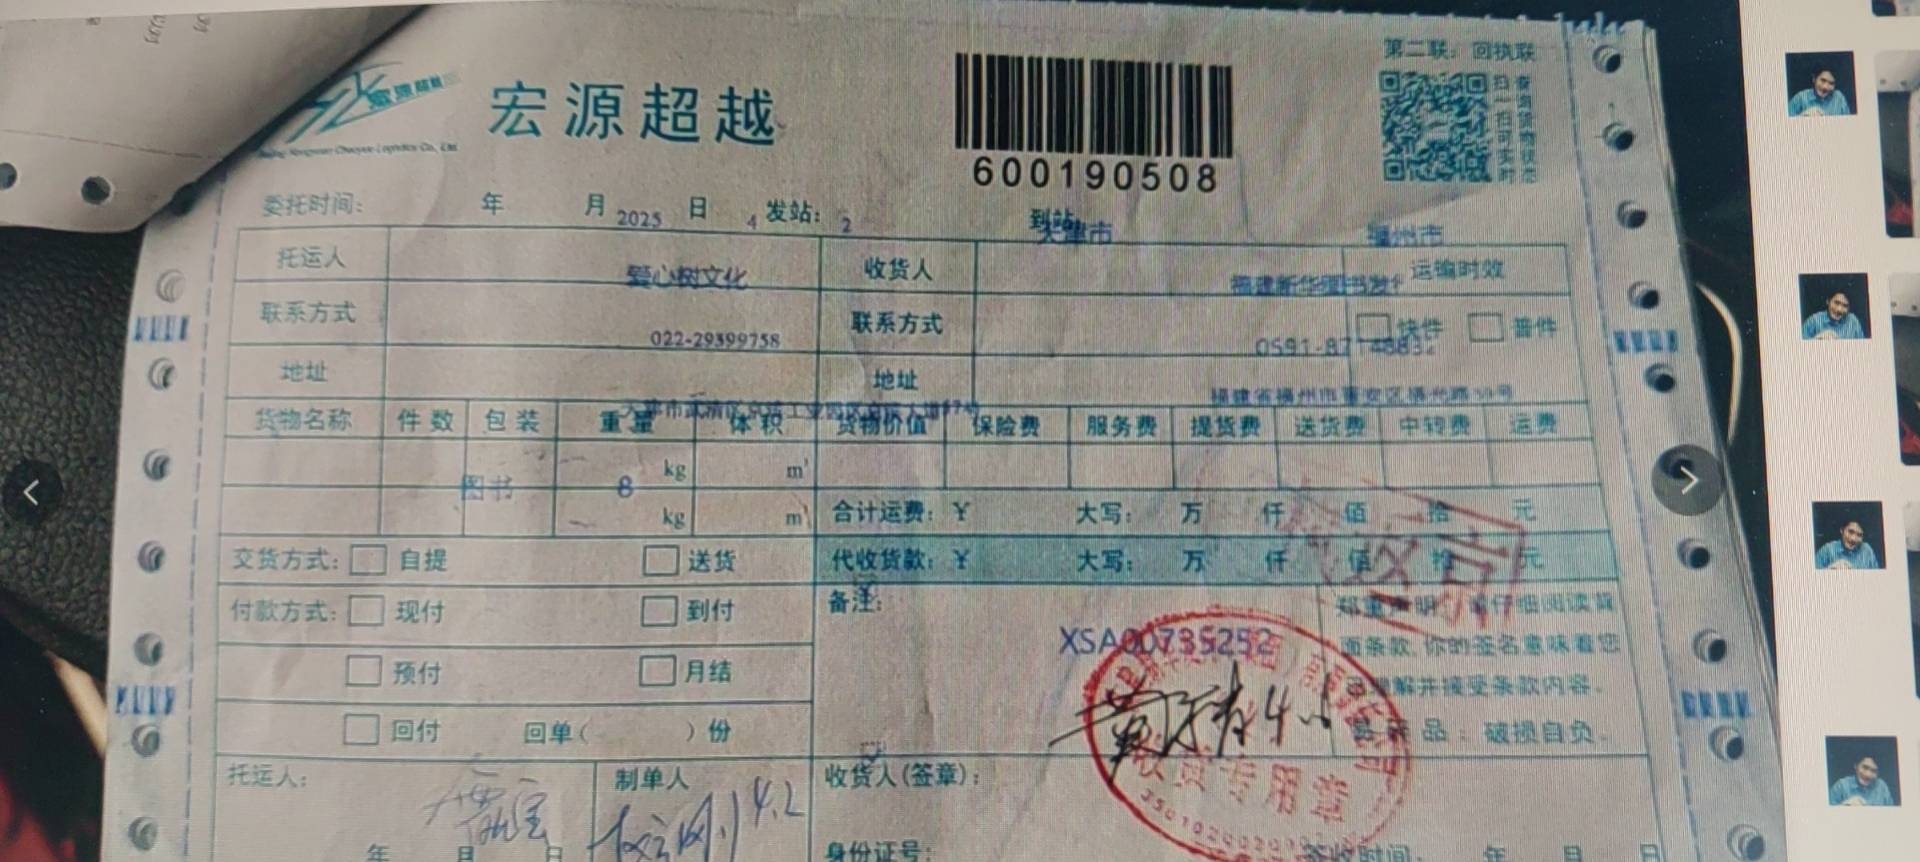 第二联：回执联
宏源超越
600190508
扫一扫可实时
查询货物状态
委托时间： 年 月 2025 日 4 发站： 2 到站 天津市 福州市
托运人 爱心树文化 收货人 福建新华图书发 运输时效
联系方式 022-29399758 联系方式 0591-87148832 快件 普件
地址 地址
货物名称 件数 包装 重量 体积 货物价值 保险费 服务费 提货费 送货费 中转费 运费
图书 8 kg m³
kg m³
合计运费：¥ 大写： 万 仟 佰 拾 元
交货方式： 自提 送货 代收货款：¥ 大写： 万 仟 佰 拾 元
付款方式： 现付 到付 备注： 郑重声明：请仔细阅读背
XSA00735252
面条款,你的签名意味着您
预付 月结
理解并接受条款内容。
回付 回单( )份
品：破损自负。
收货专用章
托运人： 制单人 收货人(签章)：
4.2
年 月 日 身份证号： 签收时间： 年 月 日